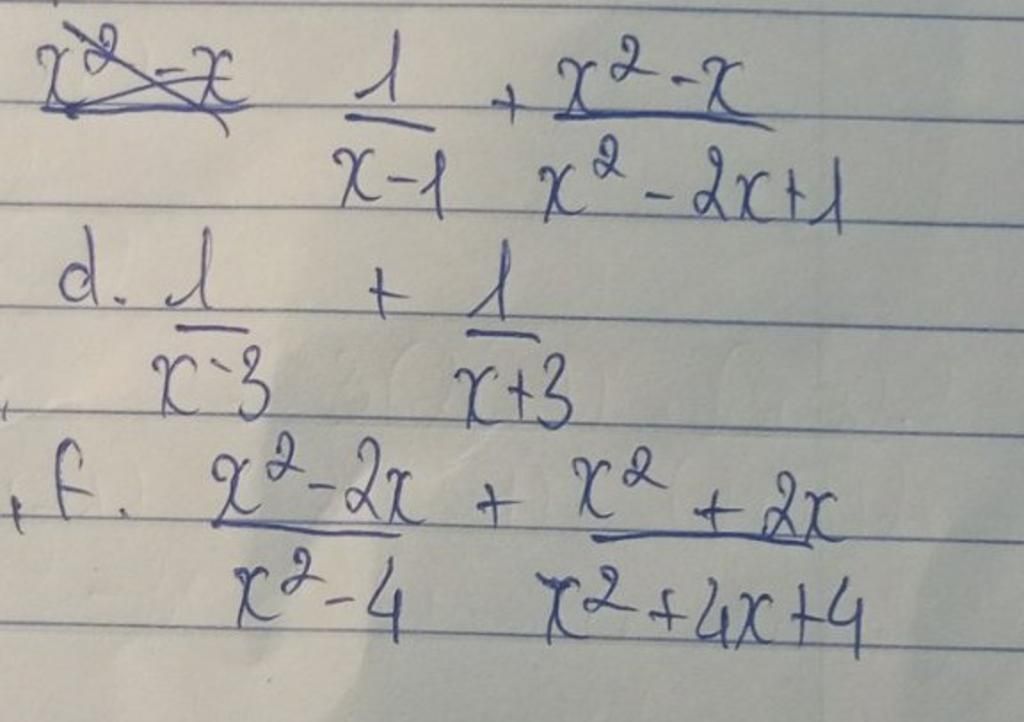 x² - x 1/(x-1) + (x² - x)/(x² - 2x + 1)
d. 1/(x-3) + 1/(x+3)
f. (x² - 2x)/(x² - 4) + (x² + 2x)/(x² + 4x + 4)